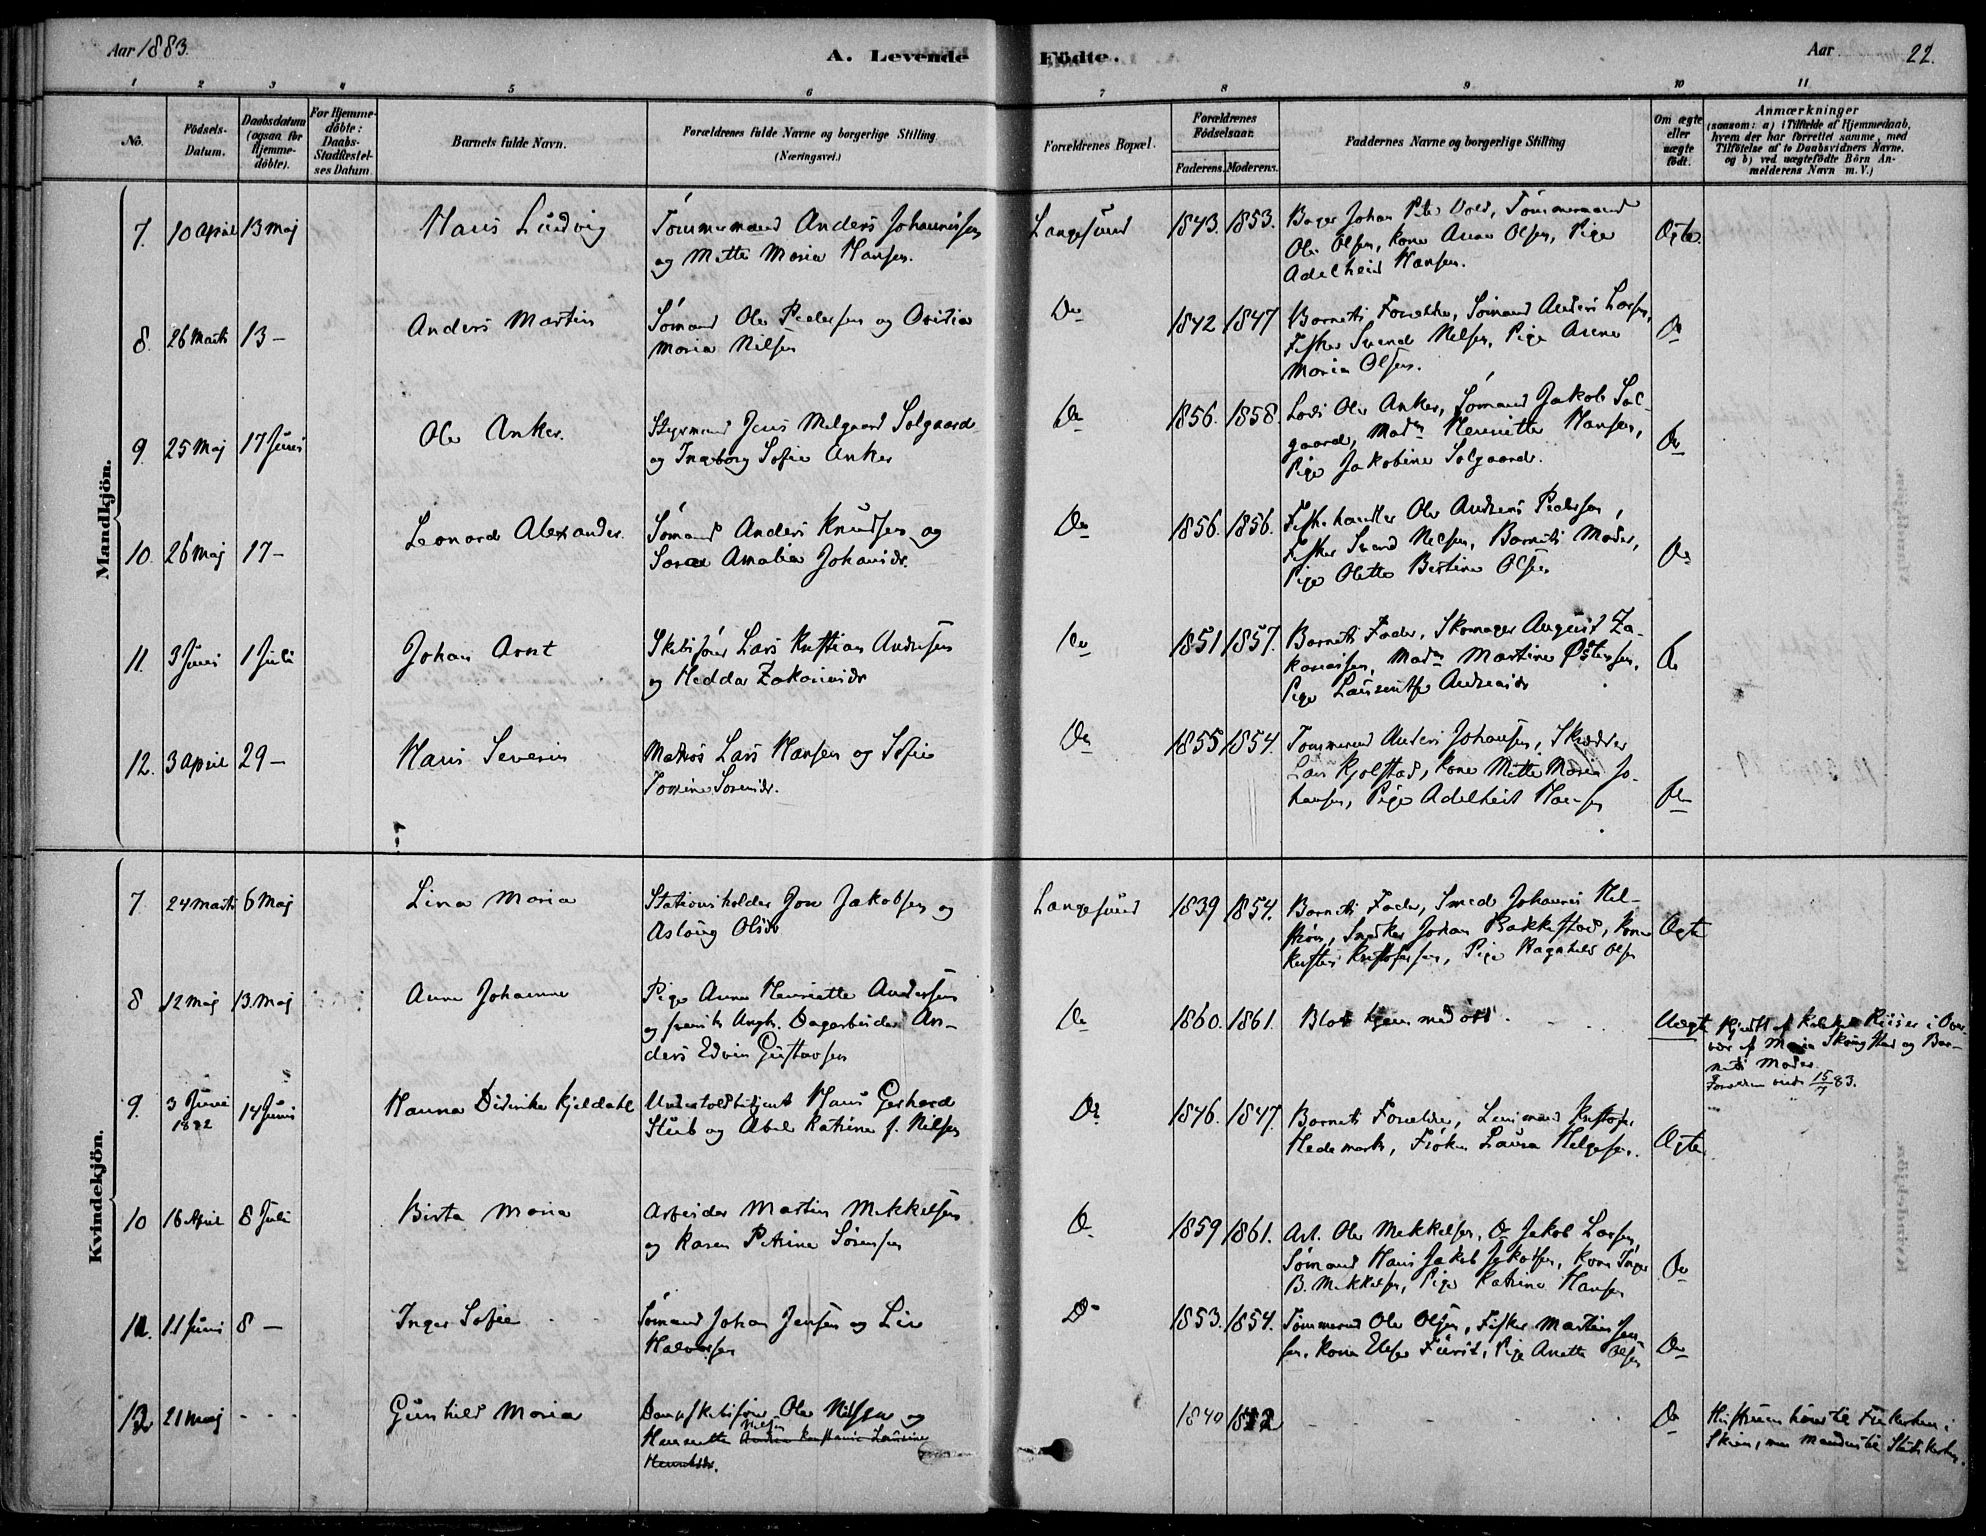 Aar 1883.
A. Levende Födte.
Aar 22.
1 2 3 4 5 6 7 8 9 10 11
No.
Födsels-Datum.
Daabsdatum (ogsaa for Hjemme-döbte).
For Hjemme-döbte: Daabs-Stadfæstel-ses Datum
Barnets fulde Navn.
Forældrenes fulde Navne og borgerlige Stilling
(Næringsvei.)
Forældrenes Bopæl.
Forældrenes Födselsaar.
Faderens. Moderens.
Faddernes Navne og borgerlige Stilling
Om ægte eller uægte födt.
Anmærkninger
(saasom: a) i Tilfælde af Hjemmedaab,
hvem der har forrettet samme, med
Tilföielse af to Daabsvidners Navne.
og b) ved uægtefödte Börn An-
melderens Navn m. V.)
Mandkjön.
7. 10 April 13 Maj Hans Ludvig Tömmermand Anders Johannesen
og Mette Maria Hansen.
Langesund 1843. 1853. Bager Johan Peter Vold, Tömmermand
Ole Olsen, Kone Anne Olsen, Pige
Adelheid Hansen.
Ægte
8. 26 Marts 13 — Anders Martin Sömand Ole Pedersen og
Maria Nilsen
Do 1842 1847 Barnets Forældre, Sömand Anders Larsen,
Fisker Svend Nelsen, Pige Anne
Maria Olsen.
Do
9. 25 Maj 17 Juni Ole Anker. Styrmand Jens Melgaard Solgaard
og Ingeborg Sofie Anker
Do 1856. 1858. Lods Ole Anker, Sömand Jakob Sol-
gaard, Madm Henriette Hansen,
Pige Jakobine Solgaard.
Do
10. 26 Maj 17 — Leonard Alexander. Sömand Anders Knudsen og
Amalia Johansdr.
Do 1856. 1856. Fiskehandler Ole Andreas Pedersen,
Fisker Svend Nelsen, Barnets Moder,
Pige Olette Bertine Olsen
Do
11. 3 Juni 1 Juli Johan Arnt Skibsförer Lars Kristian Andersen
og Hedda Zakariasdr
Do 1851 1857. Barnets Fader, Skomager August Za-
kariasen, Madm Martine Østensen,
Pige Andreasdr
Do
12. 3 April 29 — Hans Severin Matros Lars Hansen og Sofie
Sörensdr.
Do 1855 1854. Tömmermd Anders Johansen, Skrædder
Lars Kjolstad, Kone Mette Maria Jo-
hansen, Pige Adelheid Hansen
Do
Kvindekjön.
7. 24 Marts 6 Maj Lina Maria Stationsholder Jon Jakobsen og
Aslaug Olsdr
Langesund 1839 1854. Barnets Fader, Smed Johannes Hel-
ström, Snedker Johan Bakkestad, Kone
Kristofersen, Pige Ragnhild Olsen
Ægte
8 12 Maj 13 Maj Anne Johanne Pige Anne Henriette Andersen
og Dagarbeider An-
ders Edvin Gustavsen
Do 1860. 1861. Blot hjemmedöbt. Uægte Hjemdt af Riiser i Over-
vær af Maja og Bar-
nets Moder.
15/7 83.
9. 3 Juni 1882 14 Juni Hanna Didrike Kjeldahl Undertoldbetjent Hans Gerhard
Stub og Abel Katrine f. Nilsen
Do 1846. 1847. Barnets Forældre, Kristofer
Hedemark, Fröken Laura Helgesen.
Ægte
10 16 April 8 Juli Birta Maria Arbeider Martin Mekkelsen
og Karen Petrine Sörensen
Do 1859 1861. Arb. Ole Mekkelsen, Do Jakob Larsen,
Sömand Hans Jakob Jakobsen, Kone Inger
B. Mekkelsen, Pige Katrine Hansen
Do
11. 11 Juni 8 — Inger Sofie Sömand Johan Jensen og Lie
Halvorsen
Do 1853. 1854. Tömmermd Ole Olsen, Fisker Martin Jen-
sen, Kone Elise, Pige Anette Olsen
Do
12 21 Maj Gunhild Maria Dampskibsförer Ole Nilsen og
Nilsen
Hansdr.
1840 Do Hustruen hörer til Frikirken i
Skien, men Manden til Statskirken.